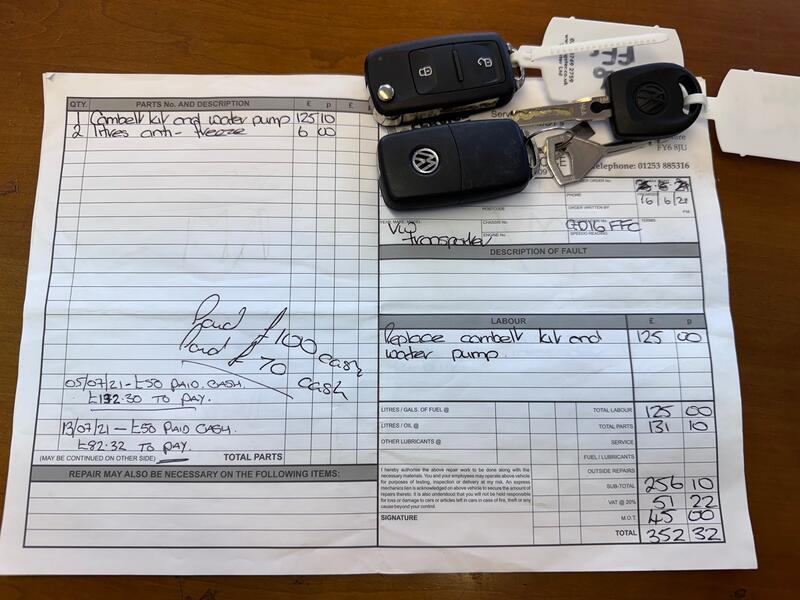 QTY.
PARTS No. AND DESCRIPTION
£
p
£
1 Cambelt kit and water pump 125 10
2 litres anti-freeze 6 00
Paid £100 cash
Paid £70 cash
05/07/21 - £50 PAID CASH.
£132.30 TO PAY.
13/07/21 - £50 PAID CASH.
£82.32 TO PAY
(MAY BE CONTINUED ON OTHER SIDE)
TOTAL PARTS
REPAIR MAY ALSO BE NECESSARY ON THE FOLLOWING ITEMS:
FY6 8JU
Telephone: 01253 885316
PHONE
16/6/21
POSTCODE
ORDER WRITTEN BY
PM
CHASSIS No.
TERMS
VW Transporter
ENGINE No.
SPEEDO READING
DESCRIPTION OF FAULT
LABOUR
£
p
Replace cambelt kit and 125 00
water pump.
LITRES / GALS. OF FUEL @
TOTAL LABOUR 125 00
LITRES / OIL @
TOTAL PARTS 131 10
OTHER LUBRICANTS @
SERVICE
FUEL / LUBRICANTS
OUTSIDE REPAIRS
I hereby authorise the above repair work to be done along with the
necessary materials. You and your employees may operate above vehicle
for purposes of testing, inspection or delivery at my risk. An express
mechanics lien is acknowledged on above vehicle to secure the amount of
repairs thereto. It is also understood that you will not be held responsible
for loss or damage to cars or articles left in cars in case of fire, theft or any
cause beyond your control.
SIGNATURE
SUB-TOTAL 256 10
VAT @ 20% 51 22
M.O.T. 45 00
TOTAL 352 32